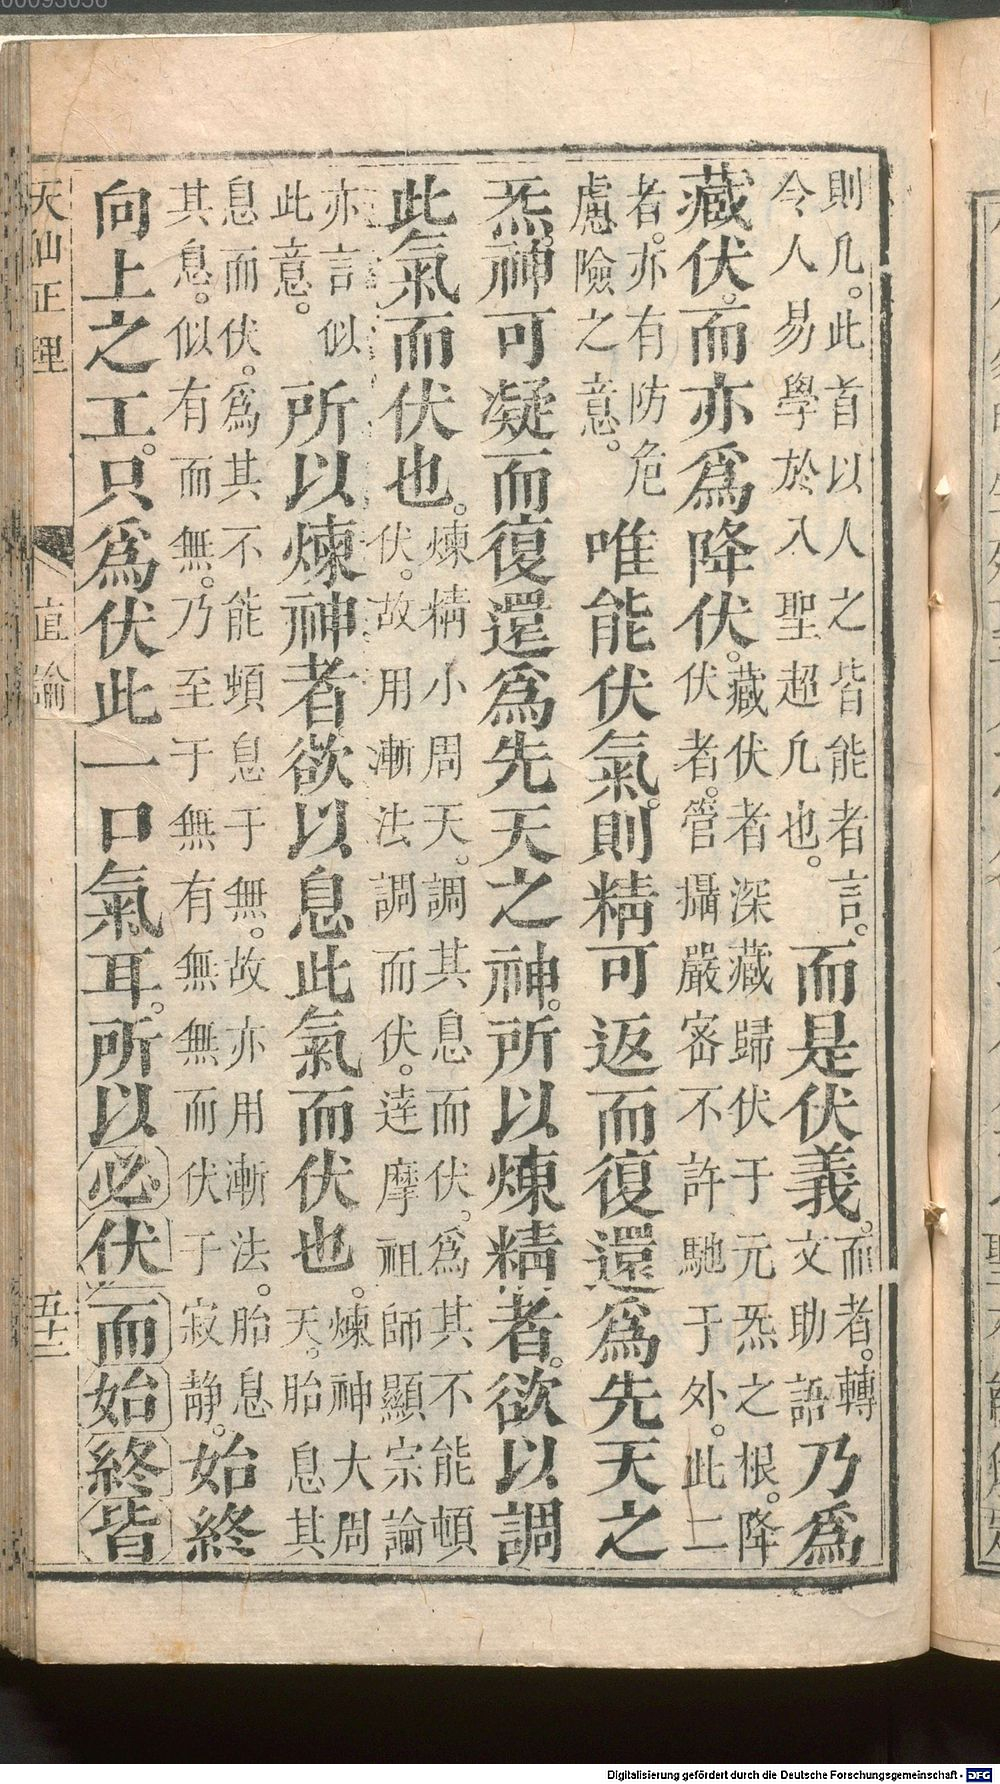 則凡。此首以人之皆能者言。
令人易學於入聖超凡也。
而是伏義。
而者。轉
文助語
乃爲
藏伏。而亦爲降伏。
藏伏者深藏歸伏于元炁之根。降
伏者。管攝嚴密不許馳于外。此二
者。亦有防危
慮險之意。
唯能伏氣。則精可返而復還爲先天之
炁。神可凝而復還爲先天之神。所以煉精者。欲以調
此氣而伏也。
煉精小周天。調其息而伏。爲其不能頓
伏。故用漸法調而伏。達摩祖師顯宗論
亦言似
此意。
所以煉神者欲以息此氣而伏也。
煉神大周
天。胎息其
息而伏。爲其不能頓息于無。故亦用漸法。胎息
其息。似有而無。乃至于無有無無而伏于寂静。
始終
向上之工。只爲伏此一口氣耳。所以必伏而始終皆
天仙正理
直論
五十二
Digitalisierung gefördert durch die Deutsche Forschungsgemeinschaft - DFG